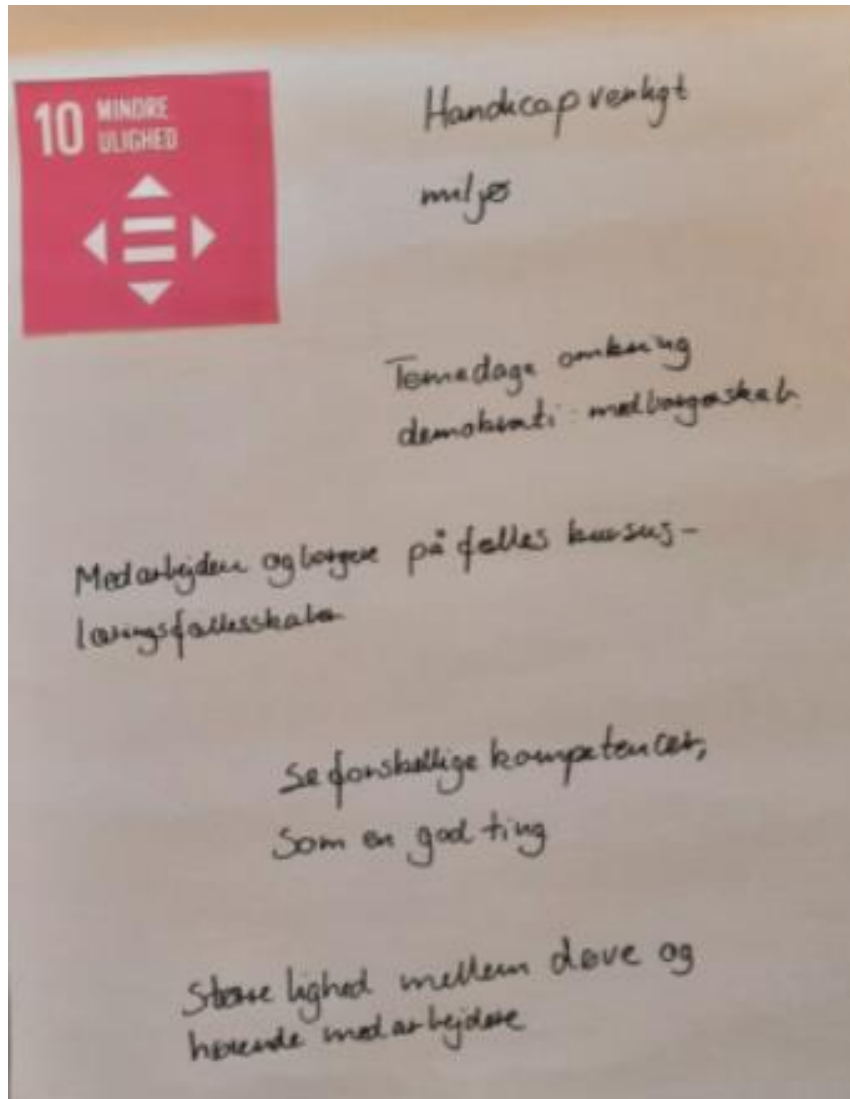 10 MINDRE
ULIGHED
Handicapvenligt
miljø
Temadage omkring
demokrati: medborgerskab.
Medarbejdere og borgere på fælles kursus-
læringsfællesskaber
Se forskellige kompetencer,
som en god ting
Større lighed mellem døve og
hørende medarbejdere